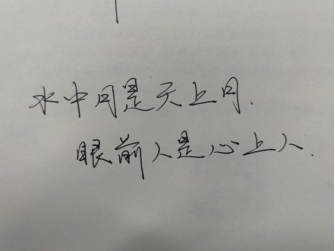 水中月是天上月.
眼前人是心上人.